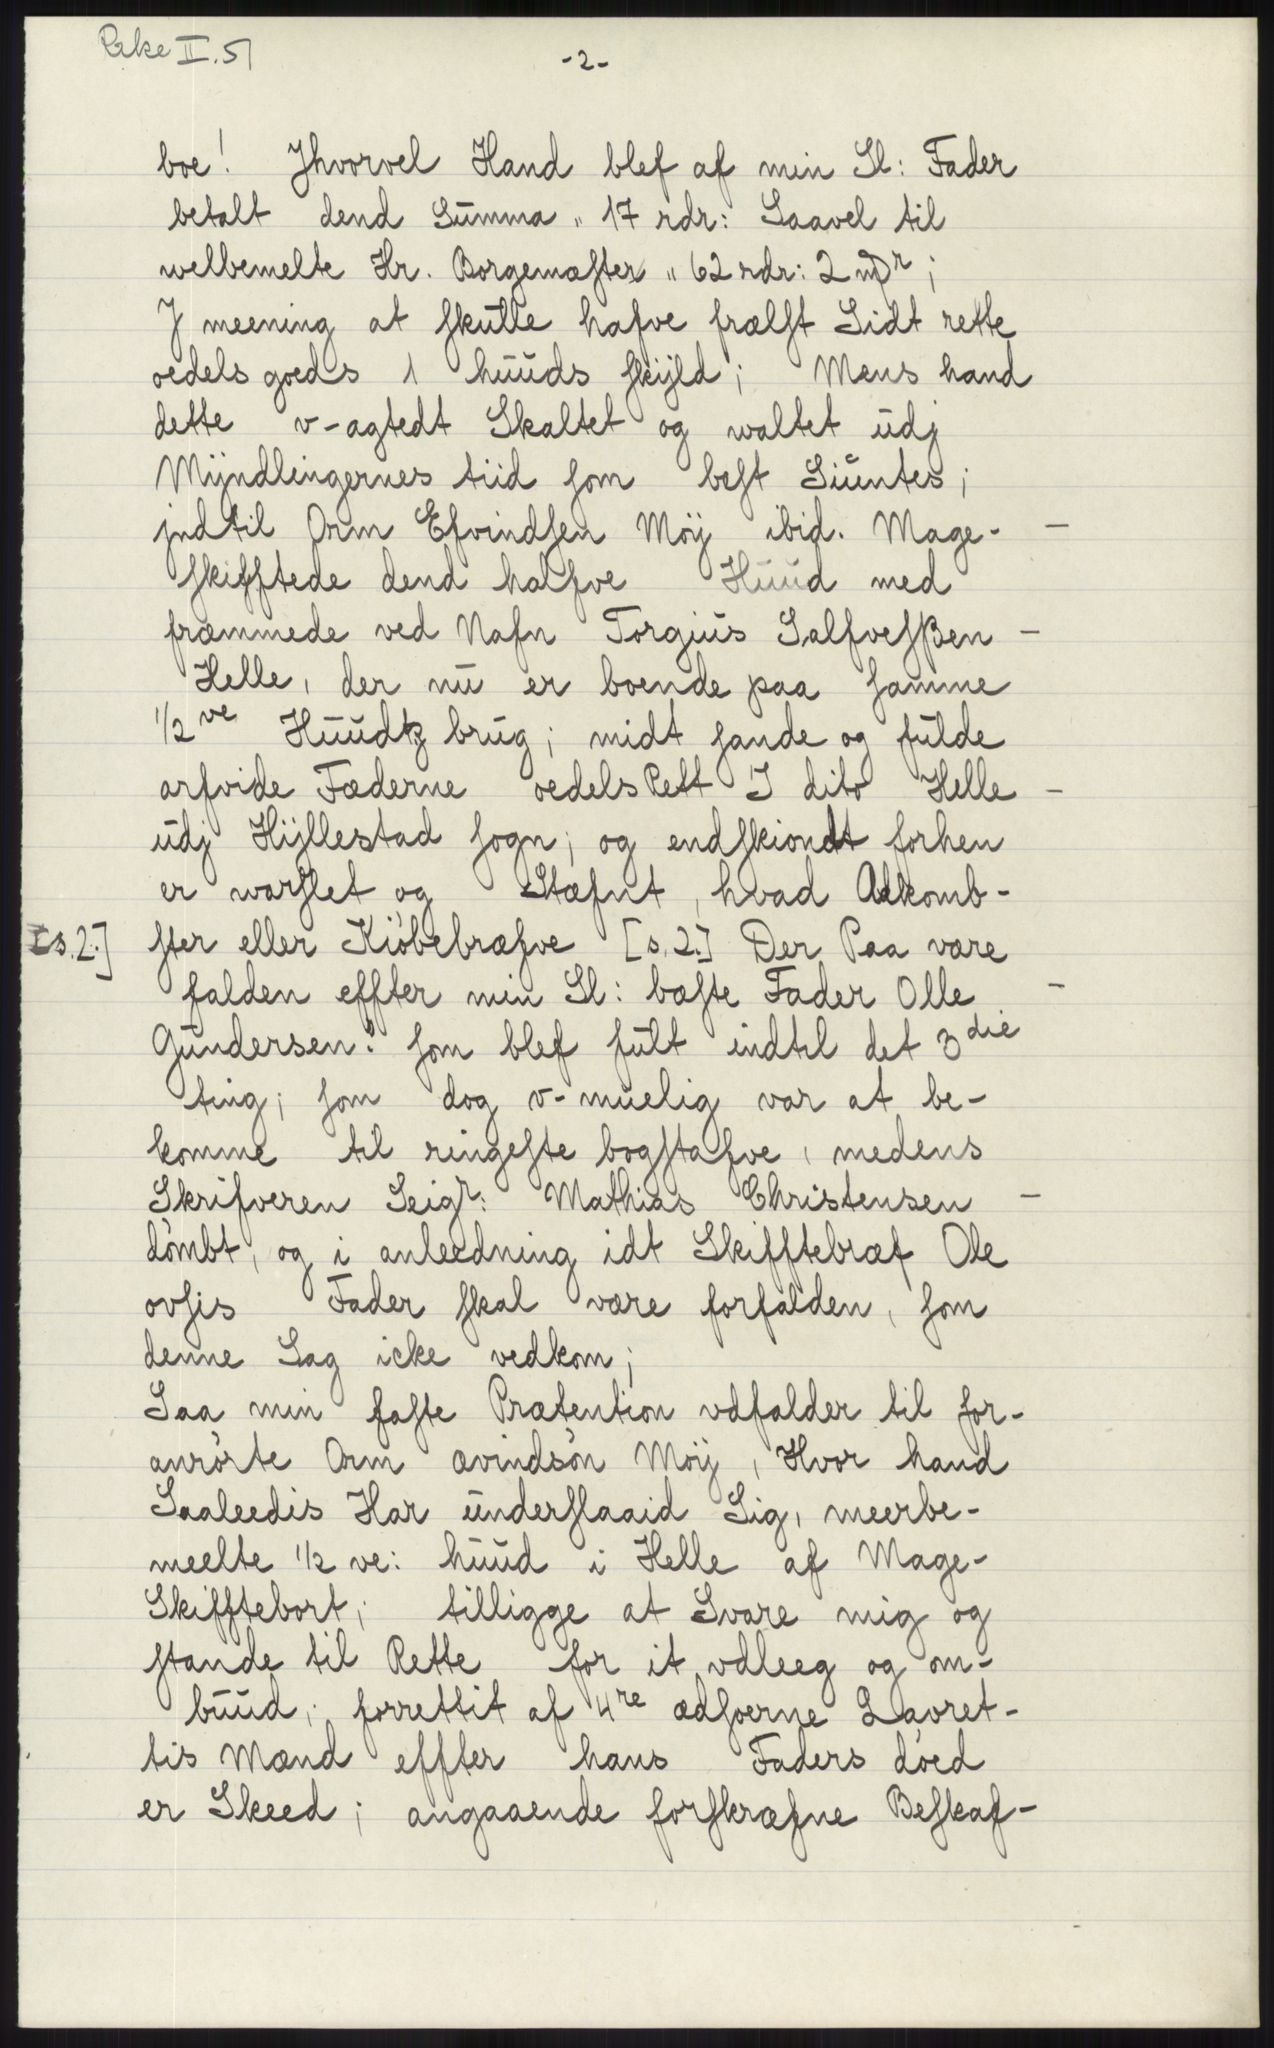 Pake II.51
-2-
boe! Jhvorvel Hand blef af min Sl: Fader
betalt dend Summa „ 17 rdr: Saavel til
welbemelte Hr. Borgemæster „ 62 rdr: 2 mDr;
J meening at skulle hafve frælst Sidt rette
oedels goeds 1 huuds skyld; Mens hand
dette v-agtedt Skaltet og waltet udj
Myndlingernes tiid som best Siuntes;
jndtil Orm Efvindsen Möÿ ibid. Mage-
skifftede dend halfve Huud med
fræmmede ved Nafn Torgius Salfvesßen
Helle, der nu er boende paa samme
1/2 ve Huudtz brug; midt sande og fulde
arfvide Fæderne oedels Rett I dito Helle
udj Hÿllestad sogn; og endskiondt forhen
er warslet og Stæfnt, hvad Adkomb-
[s.2.] ster eller Kiöbebræfve [s.2.] Der Paa være
falden effter min Sl: bæste Fader Olle
Gundersen: som blef fult indtil det 3die
ting; som dog v-muelig var at be-
komme til ringeste bogstafve, medens
Skrifveren Seigr: Mathias Christensen
dömbt, og i anleedning idt Skifftebræf Ole
ovsis Fader skal være forfalden, som
denne Sag icke vedkom;
Saa min faste Prætention vdfalder til for-
anrörte Orm ævindsön Möÿ, Hvor hand
Saaleedis Har underslaaid Sig, meerbe-
meelte 1/2 ve: huud i Helle af Mage-
Skifftebort; tilligge at Svare mig og
stande til Rette for it vdleeg og om-
buud; forrettit af 4re ædsoerne Lavret-
tis Mænd effter hans Faders döed
er Skeed; angaaende forskræfne Beskaf-